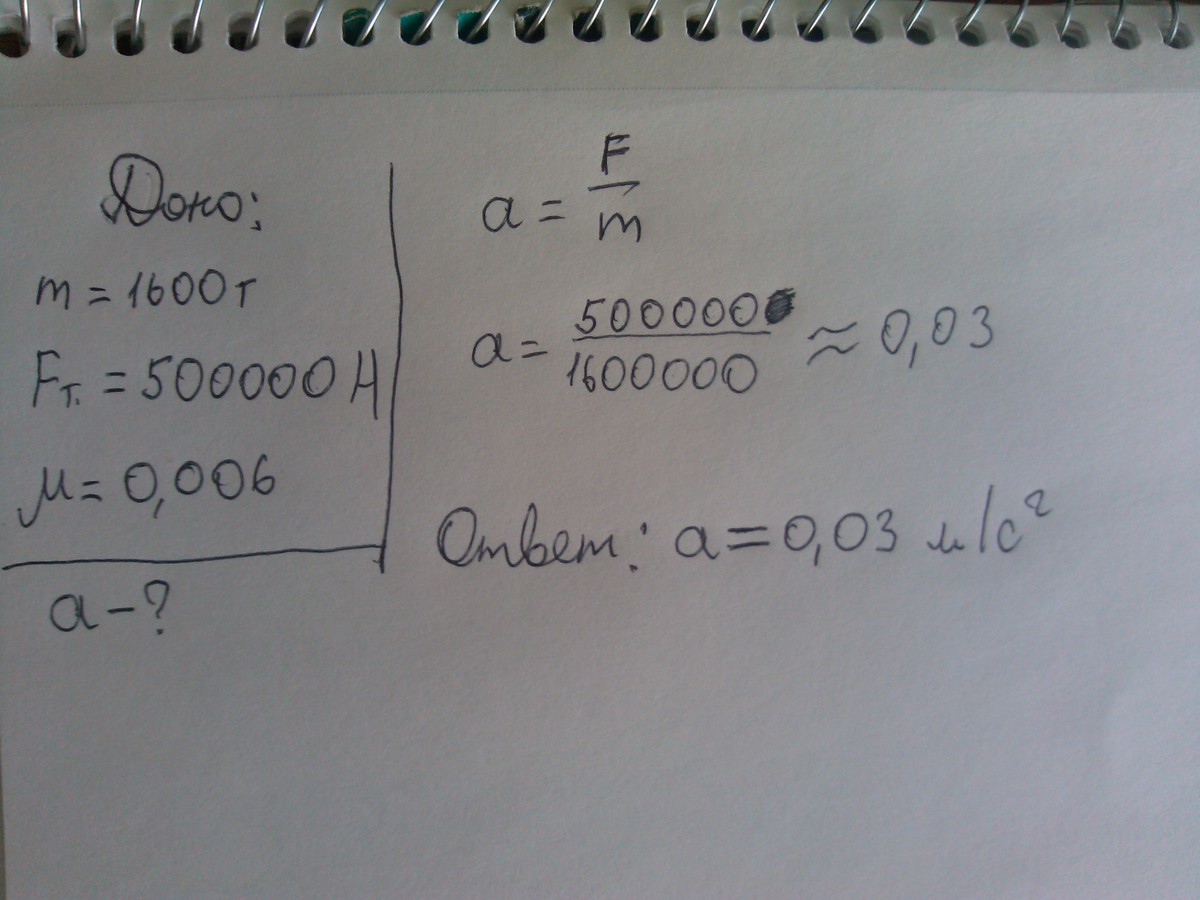 Дано:
m = 1600 т
Fт. = 500000 Н
μ = 0,006
a - ?
a = F/m
a = 500000/1600000 ≈ 0,03
Ответ: a = 0,03 м/с²